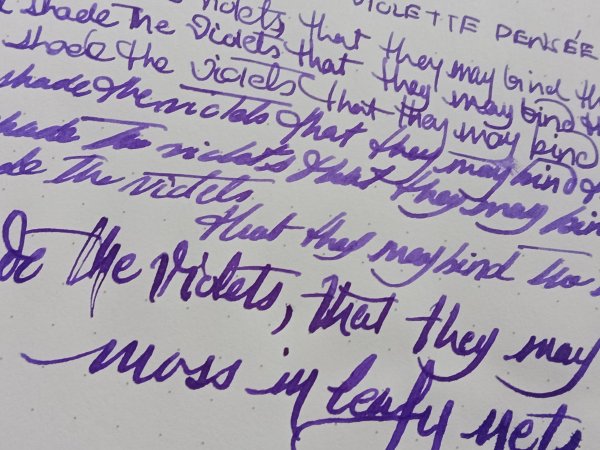 VIOLETTE PENSÉE
shade the violets that they may bind the
shade the violets that they may bind the
shade the violets that they may bind
shade the violets that they may bind
shade the violets that they may bind
the violets
that they may bind the
the violets, that they may
moss in leafy nets